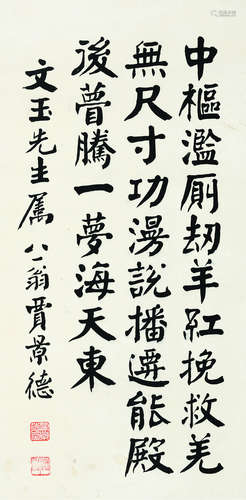 中樞濫廁劫羊紅挽救羌
無尺寸功漫說播遷能殿
後瞢騰一夢海天東
文玉先生屬 八一翁賈景德